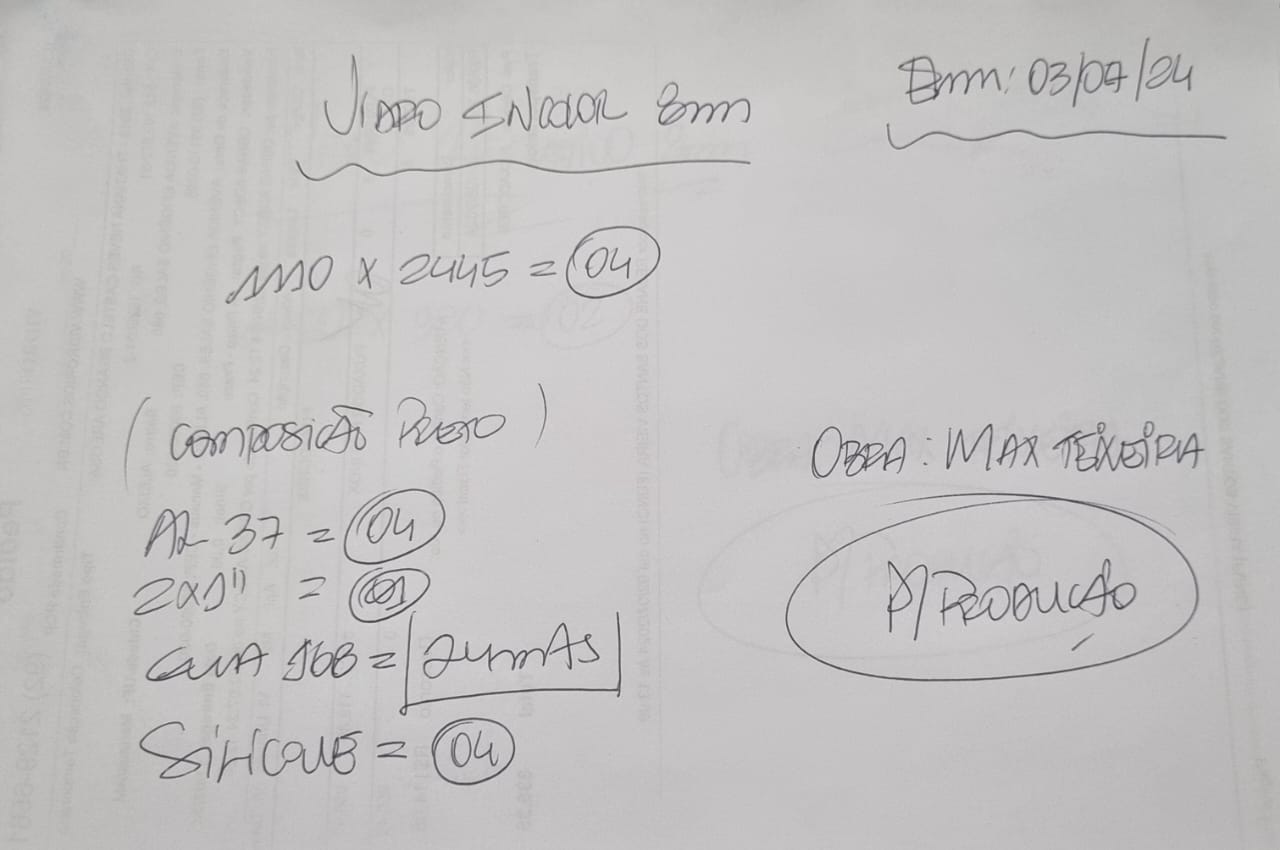 VIDRO INCOLOR 8mm
Em: 03/07/24
1110 x 2445 = 04
(COMPOSIÇÃO PRETO)
OBRA: MAX TEIXEIRA
AL 37 = 04
2x1" = 01
P/PRODUÇÃO
168 = 24mts
SILICONE = 04